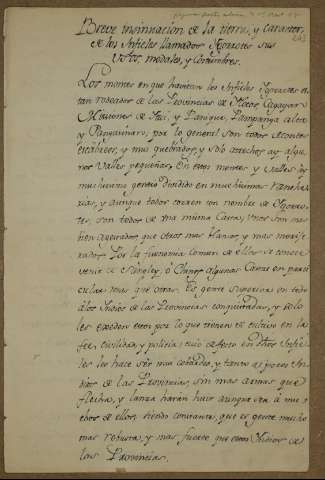 Breve insinuacion de la tierra, y Caracter,
de los Infieles llamados Ygorrotes sus
Usos, modales, y Costumbres.
Los montes en que havitan los Infieles Ygorrotes es
tan rodeados de las Provincias de Ylocos, Cagayan
Misiones de Ytui, y Panique, Pampanga alta
y Pangasinan, por lo general son todos Montes
escabrosos, y mui quebrados, y solo entre ellos ay algu
nos Valles pequeños. En estos montes y Valles hay
muchisima gente dividido en muchisimas Ranche
rias, y aunque todos corren con nombre de Ygorro
tes, son todos de una misma Casta; unos son
que otros mas blancos, y mas
Por la fisonomia comun de ellos se conoce
venir de Sangley o Chino algunas Castas en parti
culares mas que otras. Es gente superior en todo
á los Indios de las Provincias conquistadas, y solo
les exceden estos por lo que tienen de cultivo en la
fee, civilidad, y policia
les hace ser mui cobardes, y tanto
dios de las Provincias, sin mas armas que
flechas, y lanza haran huir aunque sea á mu
chos de ellos, siendo constante, que es gente mucho
mas robusta, y mas fuerte que estos Indios de
las Provincias.